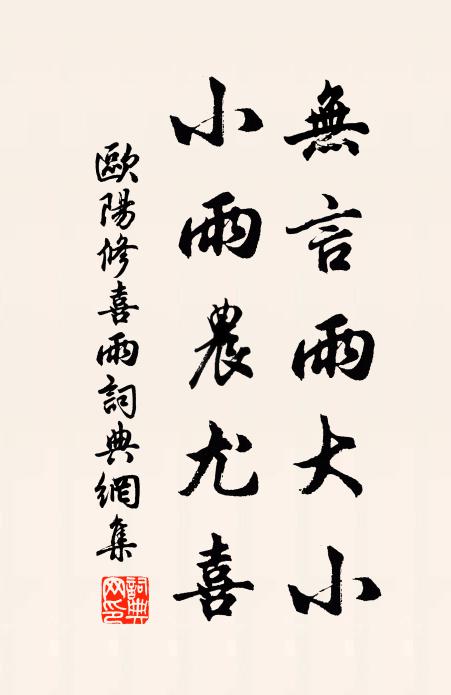 無言雨大小
小雨農尤喜
歐陽修喜雨詞典網集
詞典
网印